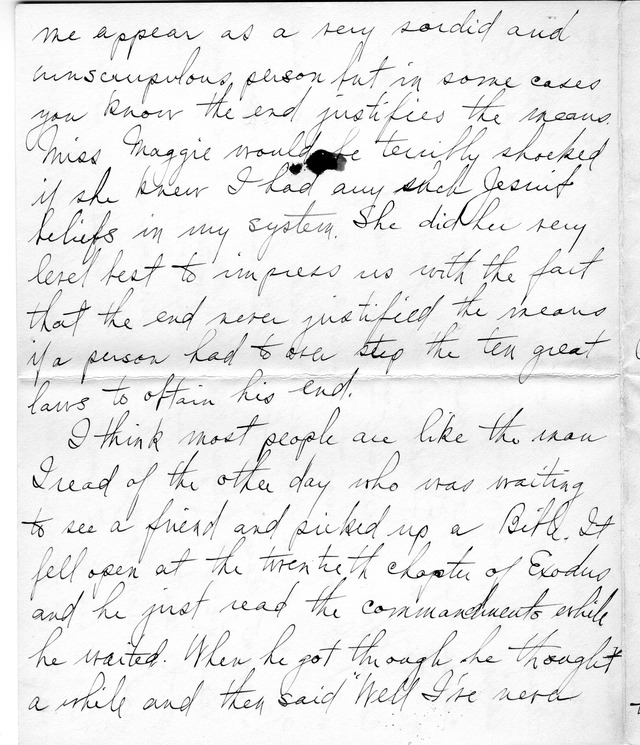 me appear as a very sordid and
unscrupulous person but in some cases
you know the end justifies the means.
Miss Maggie would be terribly shocked
if she knew I had any such Jesuit
beliefs in my system. She did her very
level best to impress us with the fact
that the end never justified the means
if a person had to over step the ten great
laws to obtain his end.
I think most people are like the man
I read of the other day who was waiting
to see a friend and picked up a Bible. It
fell open at the twentieth chapter of Exodus
and he just read the commandments while
he waited. When he got through he thought
a while and then said "Well I've never